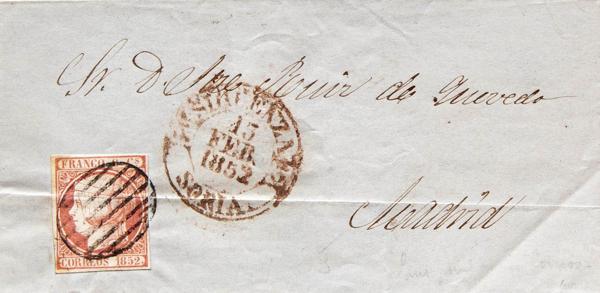 Sr. D. Jose Ruiz de Quevedo
SIGUENZA
15
FEB.
1852
SORIA.
Madrid
FRANCO 6 Cs
CORREOS 1852.